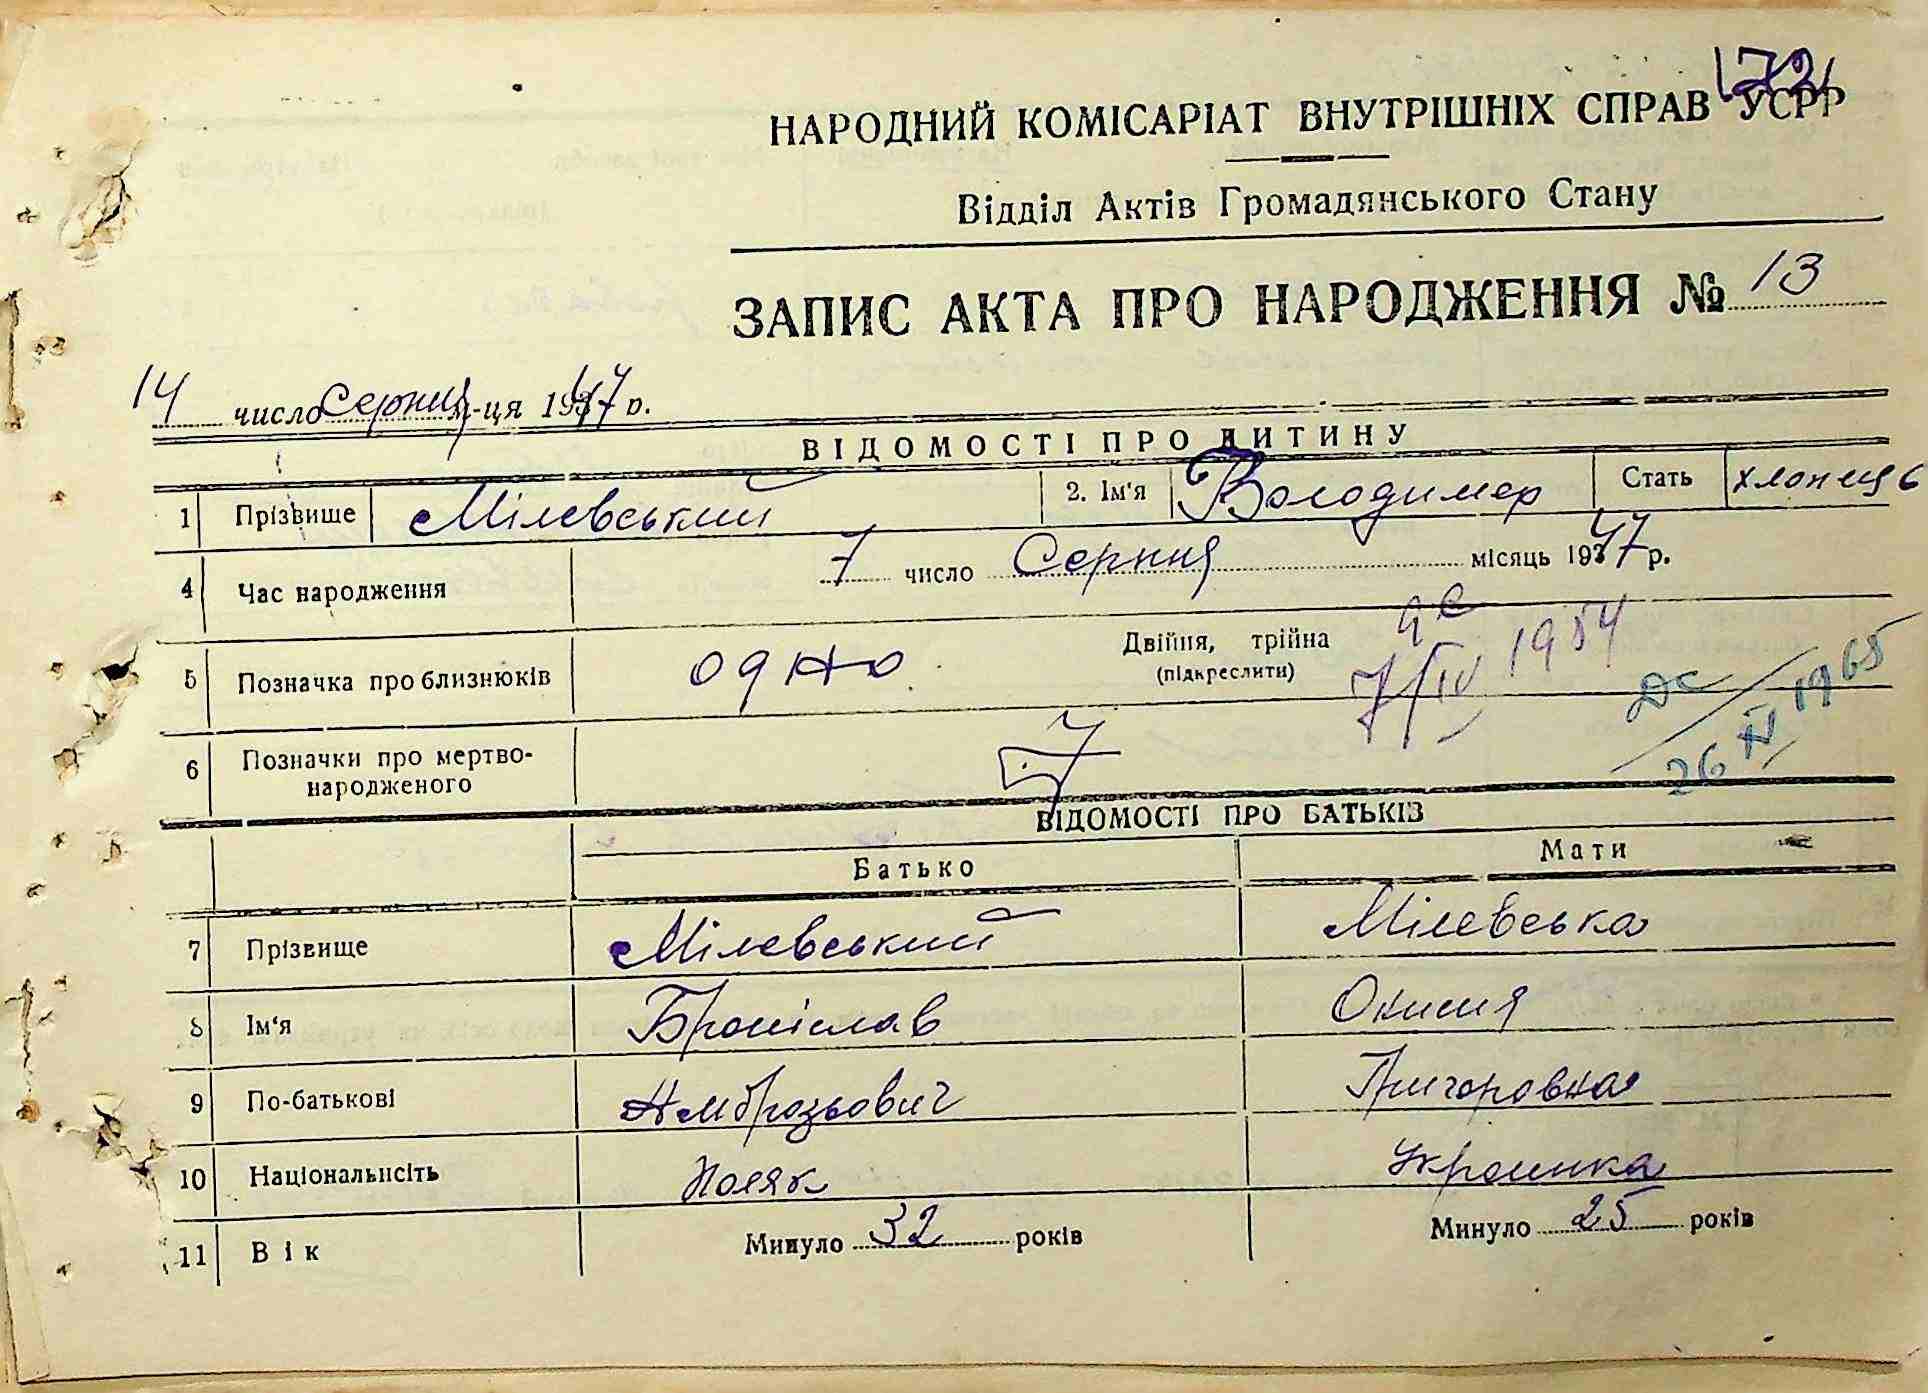 172
НАРОДНИЙ КОМІСАРІАТ ВНУТРІШНІХ СПРАВ УСРР
Відділ Актів Громадянського Стану
ЗАПИС АКТА ПРО НАРОДЖЕННЯ № 13
14 число Серпня м-ця 1947 р.
ВІДОМОСТІ ПРО ДИТИНУ
1 Прізвище Мілевський 2. Ім'я Володимер Стать хлопець
4 Час народження 7 число Серпня місяць 1947 р.
5 Позначка про близнюків одно Двійня, трійна
(підкреслити)
7/IV 1954
ДС
26 XI 1965
6 Позначки про мертво-
народженого
ВІДОМОСТІ ПРО БАТЬКІВ
Батько Мати
7 Прізвище Мілевський Мілевська
8 Ім'я Броніслав Окисия
9 По-батькові Амброзьович Григоровна
10 Національність Поляк Украинка
11 Вік Минуло 32 років Минуло 25 років